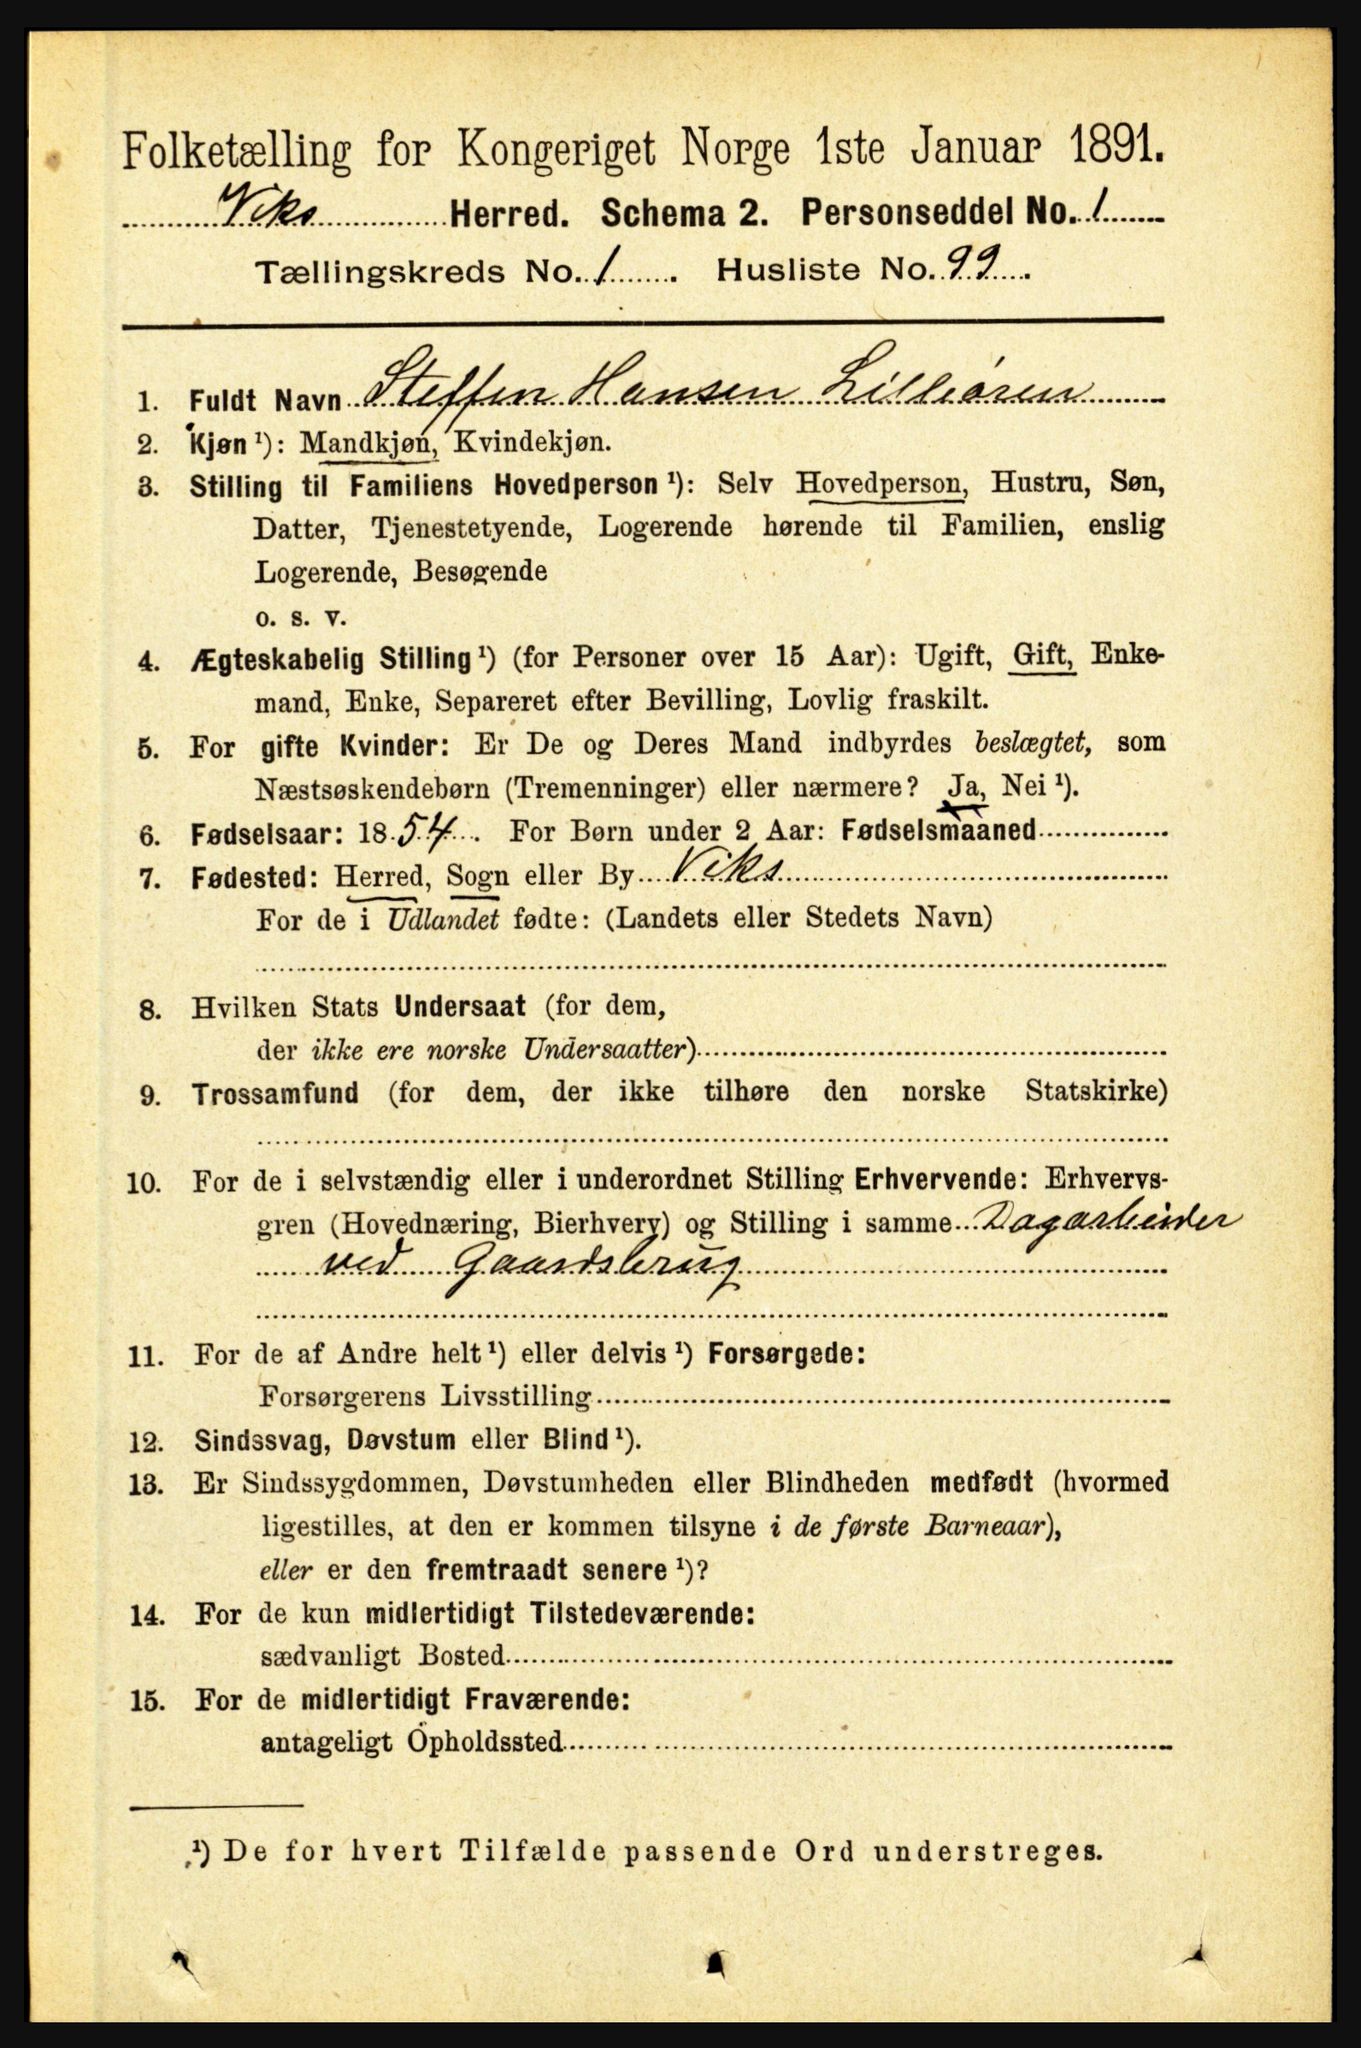 Folketælling for Kongeriget Norge 1ste Januar 1891.
Viks Herred. Schema 2. Personseddel No. 1
Tællingskreds No. 1. Husliste No. 99.
1. Fuldt Navn Steffen Hansen Lilleören
2. Kjøn ¹): Mandkjøn, Kvindekjøn.
3. Stilling til Familiens Hovedperson ¹): Selv Hovedperson, Hustru, Søn,
Datter, Tjenestetyende, Logerende hørende til Familien, enslig
Logerende, Besøgende
o. s. v.
4. Ægteskabelig Stilling ¹) (for Personer over 15 Aar): Ugift, Gift, Enke-
mand, Enke, Separeret efter Bevilling, Lovlig fraskilt.
5. For gifte Kvinder: Er De og Deres Mand indbyrdes beslægtet, som
Næstsøskendebørn (Tremenninger) eller nærmere? Ja, Nei ¹).
6. Fødselsaar: 1854. For Børn under 2 Aar: Fødselsmaaned
7. Fødested: Herred, Sogn eller By Viks
For de i Udlandet fødte: (Landets eller Stedets Navn)
8. Hvilken Stats Undersaat (for dem,
der ikke ere norske Undersaatter)
9. Trossamfund (for dem, der ikke tilhøre den norske Statskirke)
10. For de i selvstændig eller i underordnet Stilling Erhvervende: Erhvervs-
gren (Hovednæring, Bierhverv) og Stilling i samme Dagarbeider
ved Gaardsbrug
11. For de af Andre helt ¹) eller delvis ¹) Forsørgede:
Forsørgerens Livsstilling
12. Sindssvag, Døvstum eller Blind ¹).
13. Er Sindssygdommen, Døvstumheden eller Blindheden medfødt (hvormed
ligestilles, at den er kommen tilsyne i de første Barneaar),
eller er den fremtraadt senere ¹)?
14. For de kun midlertidigt Tilstedeværende:
sædvanligt Bosted
15. For de midlertidigt Fraværende:
antageligt Opholdssted
¹) De for hvert Tilfælde passende Ord understreges.